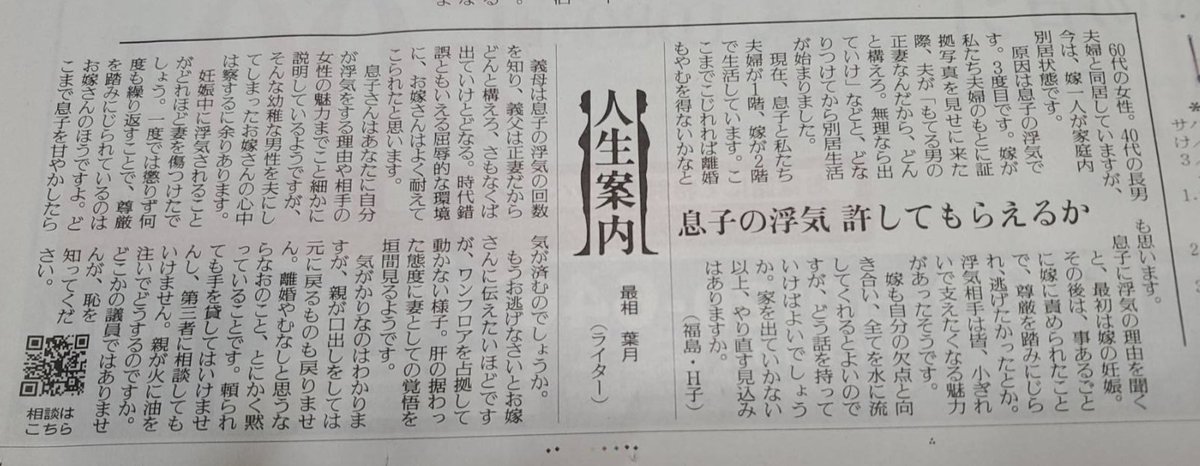 人生案内
息子の浮気 許してもらえるか
60代の女性。40代の長男
夫婦と同居していますが、
今は、嫁一人が家庭内
別居状態です。
原因は息子の浮気で
す。3度目です。嫁が
私たち夫婦のもとに証
拠写真を見せに来た
際、夫が「もてる男の
正妻なんだから、どん
と構えろ。無理なら出
ていけ」などと、どな
りつけてから別居生活
が始まりました。
現在、息子と私たち
夫婦が1階、嫁が2階
で生活しています。こ
こまでこじれれば離婚
もやむを得ないかなと
も思います。
息子に浮気の理由を聞く
と、最初は嫁の妊娠。
その後は、事あるごと
に嫁に責められたこと
で、尊厳を踏みにじら
れ、逃げたかったとか。
浮気相手は皆、小ぎれ
いで支えたくなる魅力
があったそうです。
嫁も自分の欠点と向
き合い、全てを水に流
してくれるとよいので
すが、どう話を持って
いけばよいでしょう
か。家を出ていかない
以上、やり直す見込み
はありますか。
(福島・H子)
義母は息子の浮気の回数
を知り、義父は正妻だから
どんと構えろ、さもなくば
出ていけとどなる。時代錯
誤ともいえる屈辱的な環境
に、お嫁さんはよく耐えて
こられたと思います。
息子さんはあなたに自分
が浮気をする理由や相手の
女性の魅力までこと細かに
説明しているようですが、
そんな幼稚な男性を夫にし
てしまったお嫁さんの心中
は察するに余りあります。
妊娠中に浮気されること
がどれほど妻を傷つけたで
しょう。一度では懲りず何
度も繰り返すことで、尊厳
を踏みにじられているのは
お嫁さんのほうですよ。ど
こまで息子を甘やかしたら
気が済むのでしょうか。
もうお逃げなさいとお嫁
さんに伝えたいほどです
が、ワンフロアを占拠して
動かない様子。肝の据わっ
た態度に妻としての覚悟を
垣間見るようです。
気がかりなのはわかりま
すが、親が口出しをしては
元に戻るものも戻りませ
ん。離婚やむなしと思うな
らなおのこと、とにかく黙
っていることです。頼られ
ても手を貸してはいけませ
んし、第三者に相談しても
いけません。親が火に油を
注いでどうするのですか。
どこかの議員ではありませ
んが、恥を
知ってくだ
さい。
最相 葉月
(ライター)
相談は
こちら